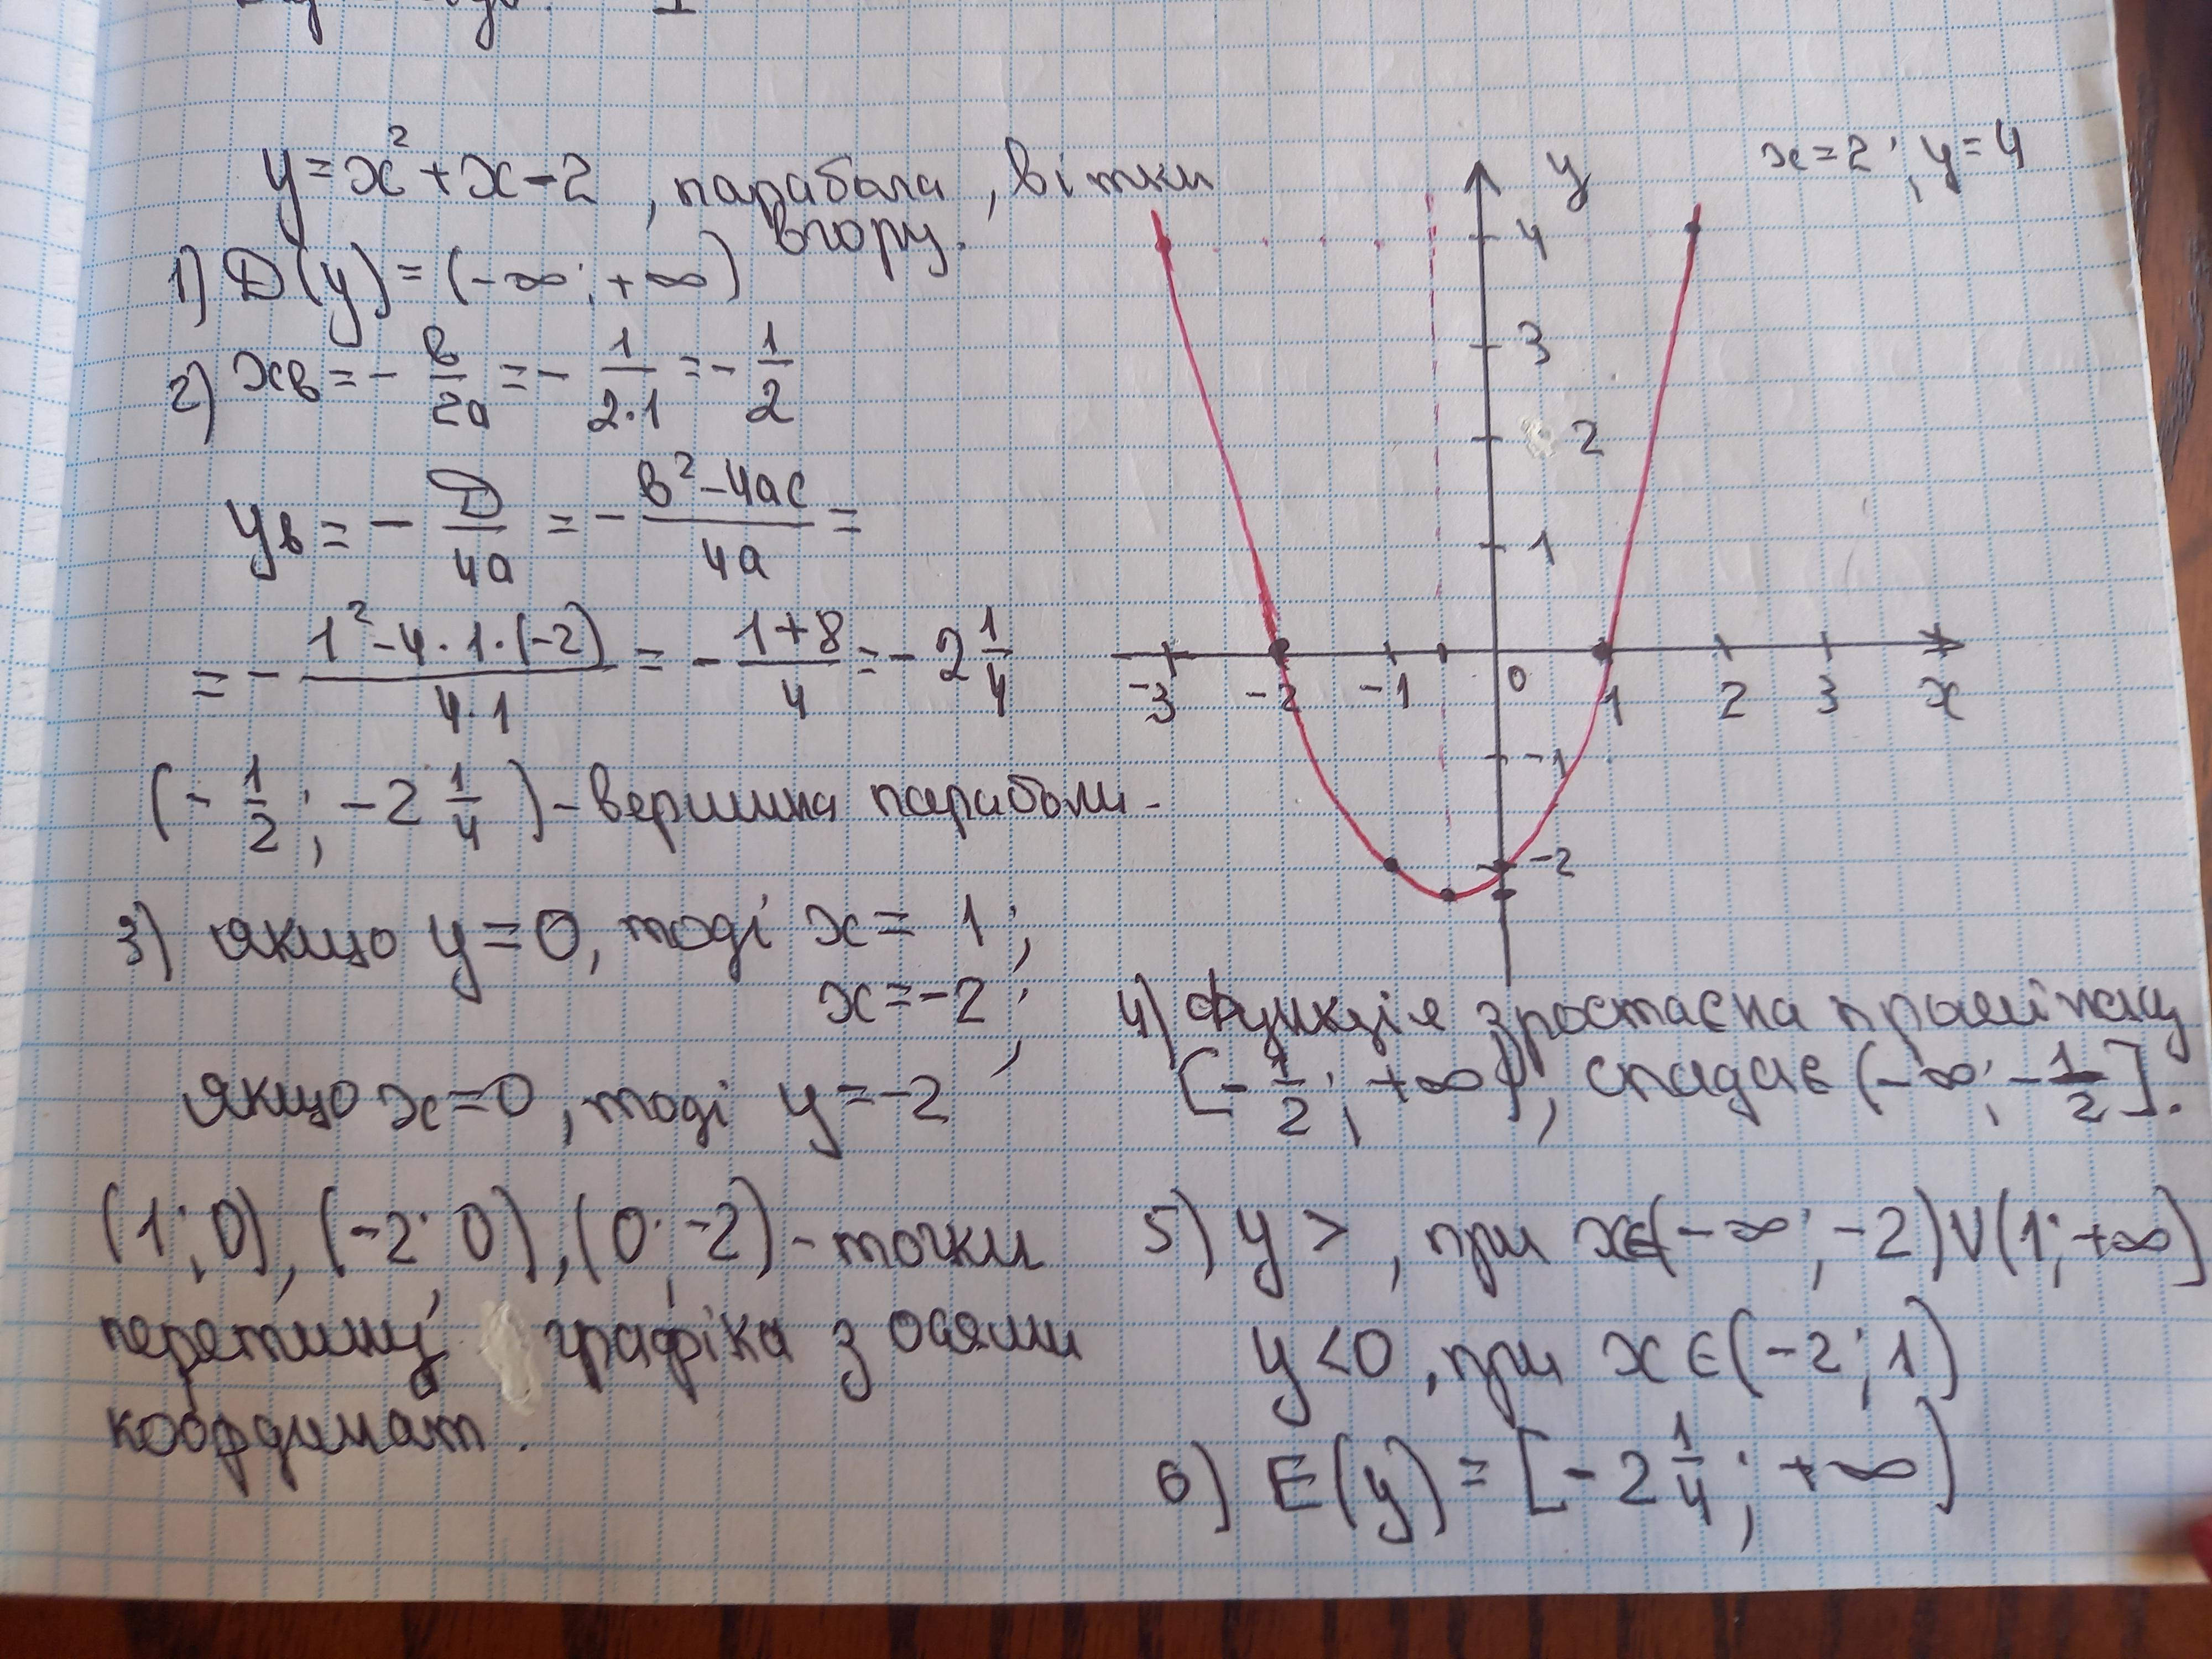 y = x² + x - 2, парабола, вітки
вгору.
1) D(y) = (-∞; +∞)
2) xв = - в/2a = - 1/2·1 = - 1/2
yв = - D/4a = - в²-4ac/4a =
= - 1²-4·1·(-2)/4·1 = - 1+8/4 = - 2 1/4
(- 1/2; -2 1/4) - вершина параболи.
3) якщо y = 0, тоді x = 1;
x = -2;
якщо x = 0, тоді y = -2
(1; 0), (-2; 0), (0; -2) - точки
перетину графіка з осями
координат.
x = 2; y = 4
y
4
3
2
1
-3 -2 -1 0 1 2 3 x
-1
-2
4) Функція зростає на проміжку
[- 1/2; +∞), спадає (-∞; - 1/2].
5) y >, при x∈(-∞; -2)∪(1; +∞)
y < 0, при x∈(-2; 1)
6) E(y) = [-2 1/4; +∞)